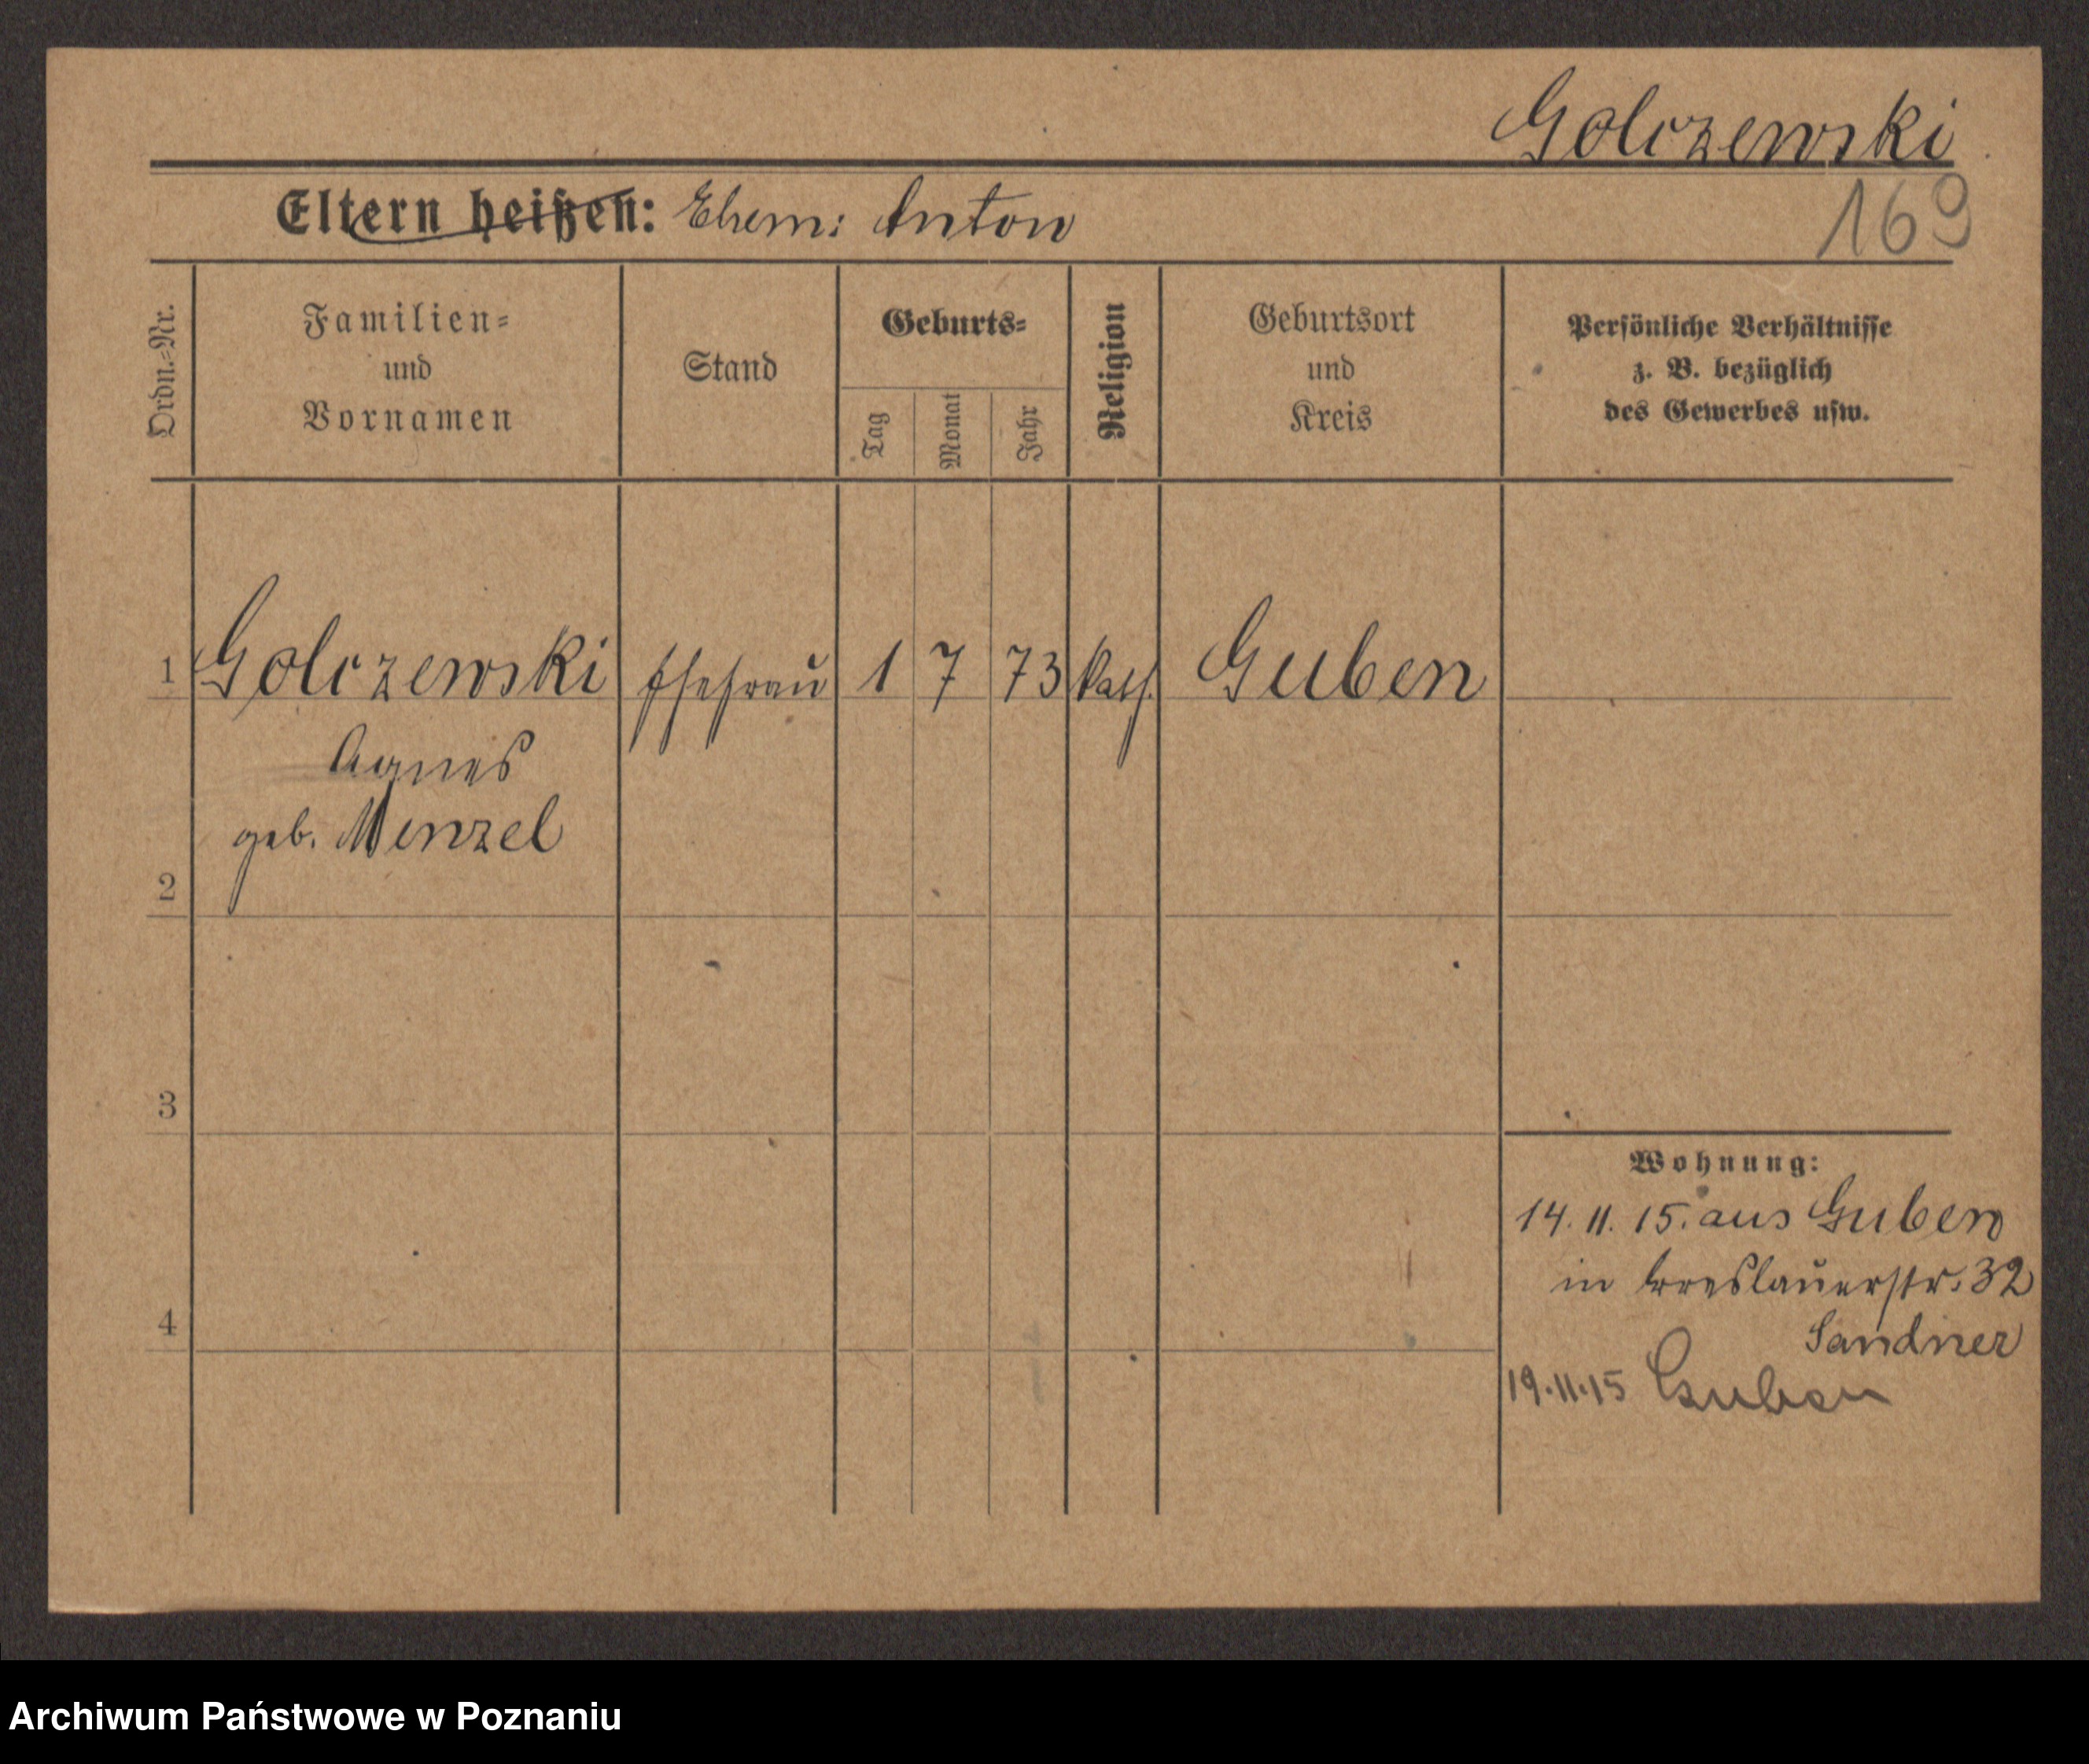 Golczewski
169
Eltern heißen: Ehem: Anton
Ordn.-Nr.
Familien-
und
Vornamen
Stand
Geburts-
Tag
Monat
Jahr
Religion
Geburtsort
und
Kreis
Persönliche Verhältnisse
z. B. bezüglich
des Gewerbes usw.
1 Golczewski Ehefrau 1 7 73 kath. Guben
Agnes
geb. Menzel
2
3
Wohnung:
14. 11. 15. aus Guben
in Breslauerstr. 32
4
Sandner
19.11.15 Guben
Archiwum Państwowe w Poznaniu